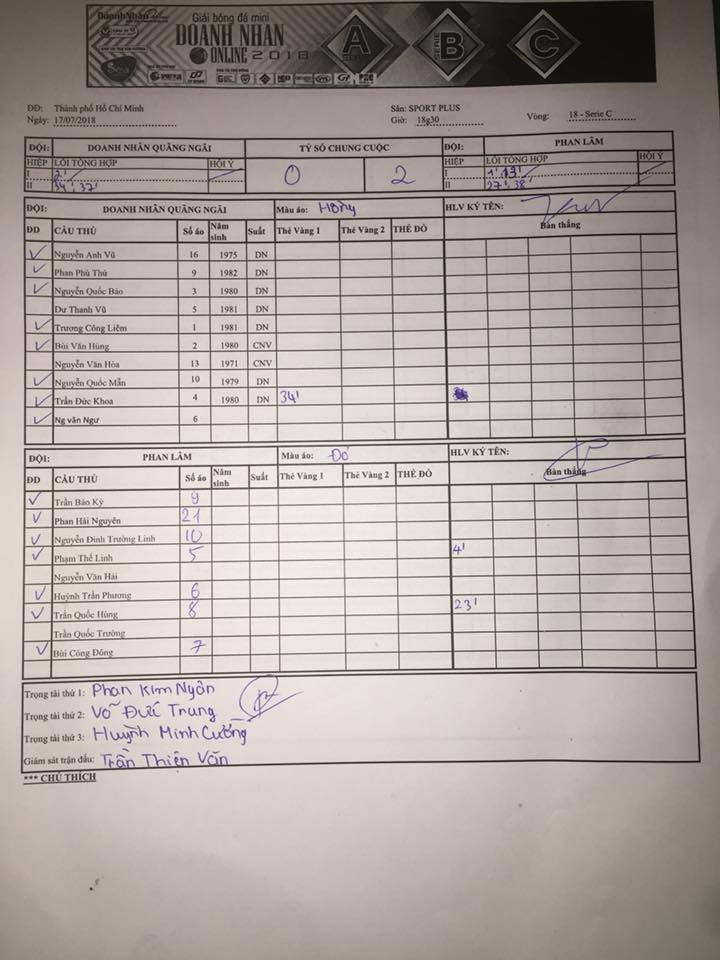 DoanhNhan
Giải bóng đá mini
DOANH NHÂN
ONLINE 2018
SERIE A
SERIE B
C
ĐĐ: Thành phố Hồ Chí Minh Sân: SPORT PLUS
Ngày: 17/07/2018 Giờ: 18g30 Vòng: 18 - Serie C
ĐỘI: DOANH NHÂN QUẢNG NGÃI TỶ SỐ CHUNG CUỘC ĐỘI: PHAN LÂM
HIỆP LỖI TỔNG HỢP HỘI Ý 0 2 HIỆP LỖI TỔNG HỢP HỘI Ý
I 2' I 1' 13'
II 34', 37' II 27', 38'
ĐỘI: DOANH NHÂN QUẢNG NGÃI Màu áo: Hồng HLV KÝ TÊN:
ĐD CẦU THỦ Số áo Năm sinh Suất Thẻ Vàng 1 Thẻ Vàng 2 THẺ ĐỎ Bàn thắng
Nguyễn Anh Vũ 16 1975 DN
Phan Phú Thứ 9 1982 DN
Nguyễn Quốc Bảo 3 1980 DN
Dư Thanh Vũ 5 1981 DN
Trương Công Liêm 1 1981 DN
Bùi Văn Hùng 2 1980 CNV
Nguyễn Văn Hòa 13 1971 CNV
Nguyễn Quốc Mẫn 10 1979 DN
Trần Đức Khoa 4 1980 DN 34'
Ng văn Ngư 6
ĐỘI: PHAN LÂM Màu áo: Đỏ HLV KÝ TÊN:
ĐD CẦU THỦ Số áo Năm sinh Suất Thẻ Vàng 1 Thẻ Vàng 2 THẺ ĐỎ Bàn thắng
Trần Bảo Kỳ 9
Phan Hải Nguyên 21
Nguyễn Đình Trường Linh 10
Phạm Thế Linh 5 4'
Nguyễn Văn Hải
Huỳnh Trần Phương 6
Trần Quốc Hùng 8 23'
Trần Quốc Trường
Bùi Công Đông 7
Trọng tài thứ 1: Phan Kim Ngôn
Trọng tài thứ 2: Võ Đức Trung
Trọng tài thứ 3: Huỳnh Minh Cường
Giám sát trận đấu: Trần Thiện Văn
*** CHÚ THÍCH